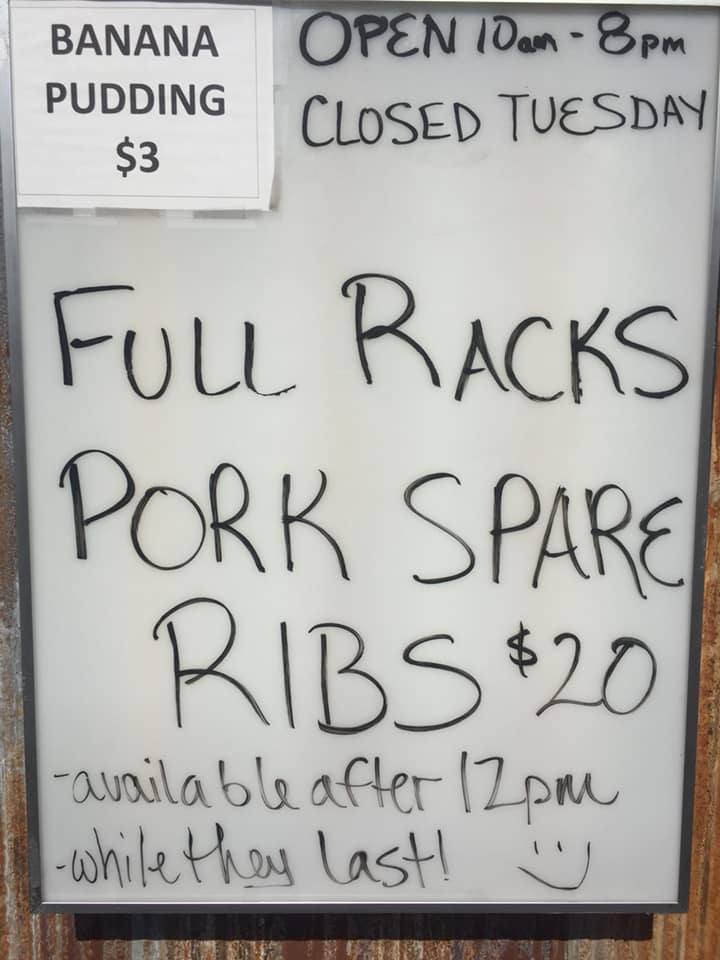 BANANA
PUDDING
$3
OPEN 10am - 8pm
CLOSED TUESDAY
FULL RACKS
PORK SPARE
RIBS $20
-available after 12pm
-while they last! :)